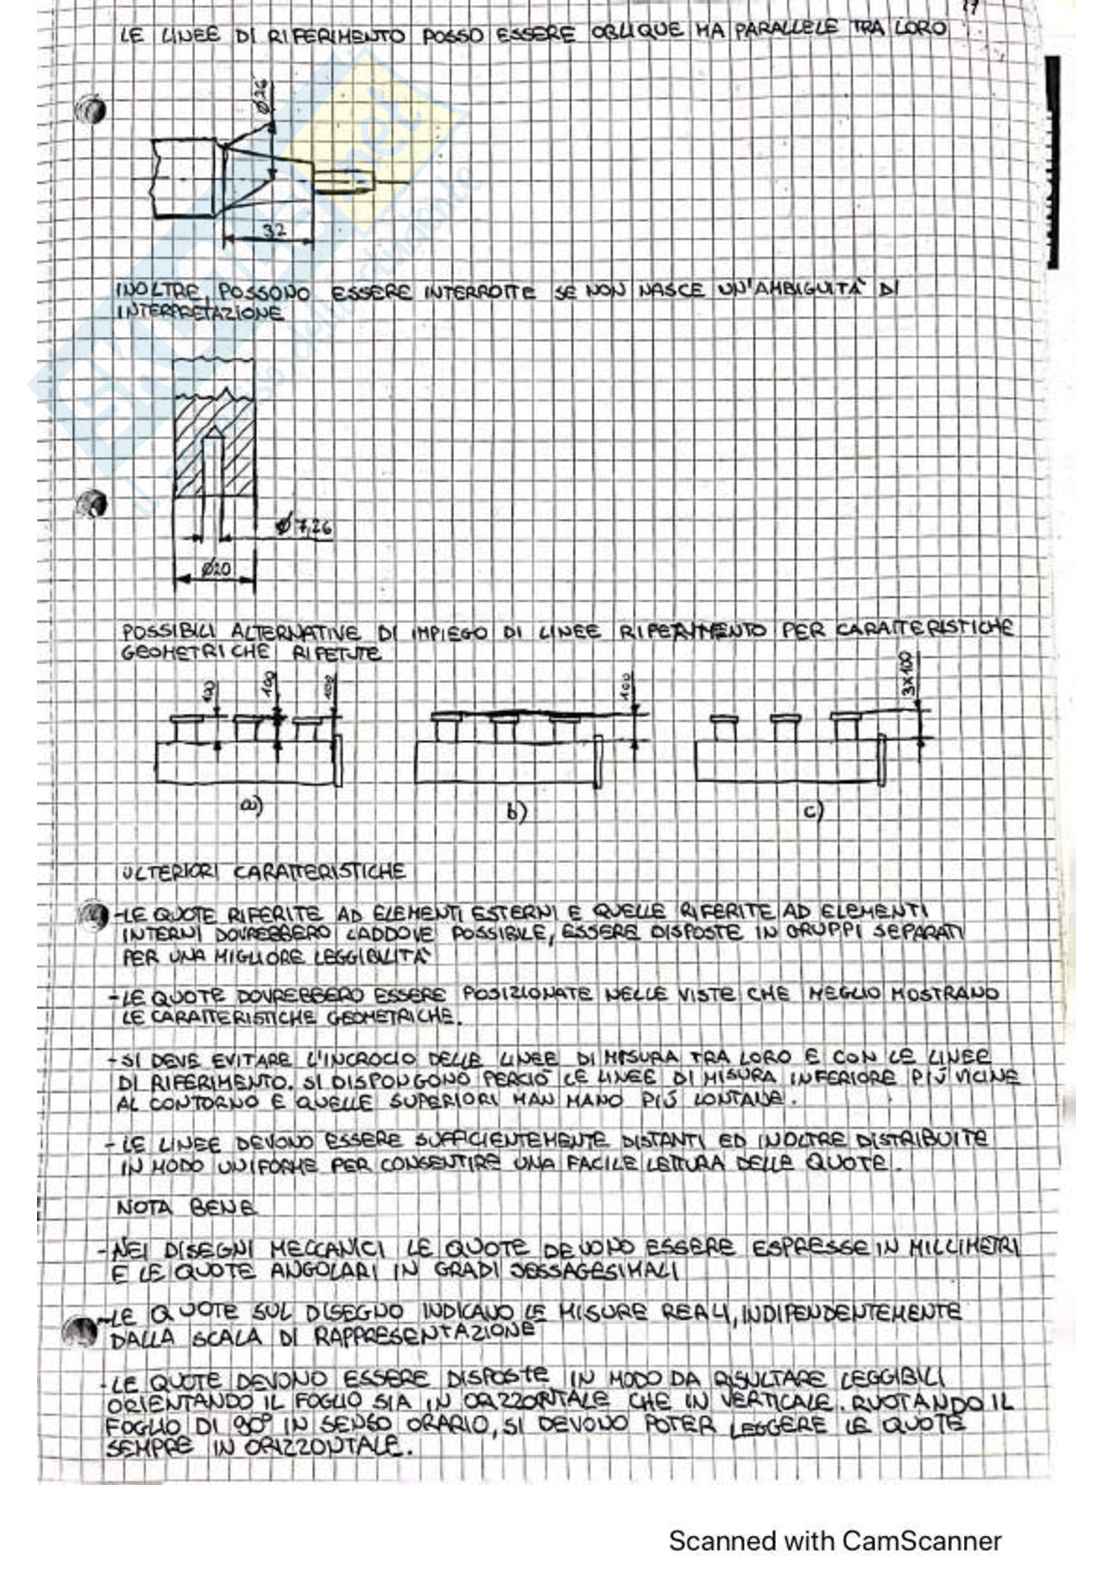 LE LINEE DI RIFERIMENTO POSSO ESSERE OBLIQUE MA PARALLELE TRA LORO
Ø26
32
INOLTRE, POSSONO ESSERE INTERROTTE SE NON NASCE UN'AMBIGUITÀ DI
INTERPRETAZIONE
Ø7,26
Ø20
POSSIBILI ALTERNATIVE DI IMPIEGO DI LINEE RIFERIMENTO PER CARATTERISTICHE
GEOMETRICHE RIPETUTE
100 100 100 100 3X100
a) b) c)
ULTERIORI CARATTERISTICHE
-LE QUOTE RIFERITE AD ELEMENTI ESTERNI E QUELLE RIFERITE AD ELEMENTI
INTERNI DOVREBBERO LADDOVE POSSIBILE, ESSERE DISPOSTE IN GRUPPI SEPARATI
PER UNA MIGLIORE LEGGIBILITÀ
-LE QUOTE DOVREBBERO ESSERE POSIZIONATE NELLE VISTE CHE MEGLIO MOSTRANO
LE CARATTERISTICHE GEOMETRICHE.
-SI DEVE EVITARE L'INCROCIO DELLE LINEE DI MISURA TRA LORO E CON LE LINEE
DI RIFERIMENTO. SI DISPONGONO PERCIÒ LE LINEE DI MISURA INFERIORE PIÙ VICINE
AL CONTORNO E QUELLE SUPERIORI MAN MANO PIÙ LONTANE.
-LE LINEE DEVONO ESSERE SUFFICIENTEMENTE DISTANTI ED INOLTRE DISTRIBUITE
IN MODO UNIFORME PER CONSENTIRE UNA FACILE LETTURA DELLE QUOTE.
NOTA BENE
-NEI DISEGNI MECCANICI LE QUOTE DEVONO ESSERE ESPRESSE IN MILLIMETRI
E LE QUOTE ANGOLARI IN GRADI SESSAGESIMALI
-LE QUOTE SUL DISEGNO INDICANO LE MISURE REALI, INDIPENDENTEMENTE
DALLA SCALA DI RAPPRESENTAZIONE
-LE QUOTE DEVONO ESSERE DISPOSTE IN MODO DA RISULTARE LEGGIBILI
ORIENTANDO IL FOGLIO SIA IN ORIZZONTALE CHE IN VERTICALE. RUOTANDO IL
FOGLIO DI 90° IN SENSO ORARIO, SI DEVONO POTER LEGGERE LE QUOTE
SEMPRE IN ORIZZONTALE.
Scanned with CamScanner